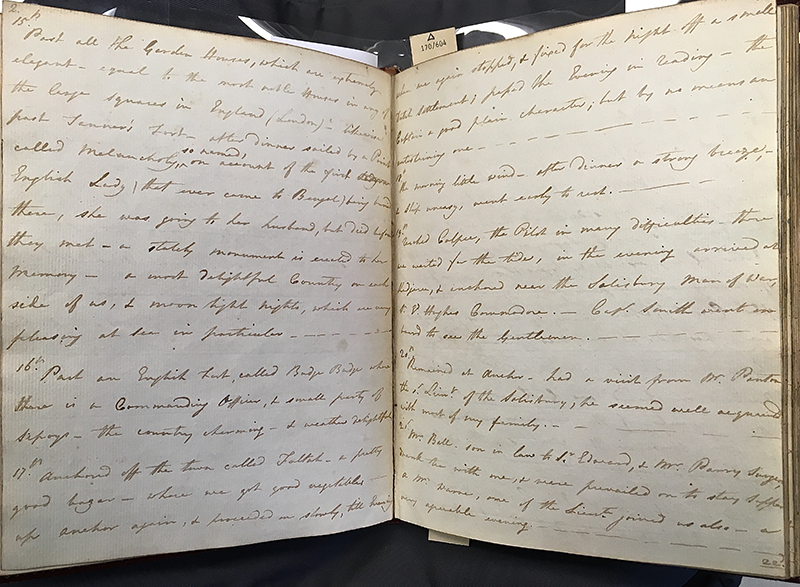 2
15th
Past all the Garden Houses, which are extremely
elegant - equal to the most noble Houses in any of
the large squares in England (London) -
past Tanner's Fort - after dinner sailed by a Point
called Melancholy, so named, on account of the first
English Lady (that ever came to Bengal) being buried
there, she was going to her husband, but died before
they met - a stately monument is erected to her
memory - a most delightful Country on each
side of us, & moon light nights, which are very
pleasing at Sea in particular - - - -
16th
Past an English Fort, called Budge Budge where
there is a Commanding Officer, & small party of
Sepoys - the country charming - & weather delightful
17th Anchored off the town called Fultah - a pretty
good bazar - where we got good vegetables -
up anchor again, & proceeded on slowly, till Evening
170/604
when we again stopped, & fixed for the night off a small
settlement; passed the Evening in reading - the
Captain a good plain character; but by no means an
entertaining one - - - -
the morning little wind - after dinner a strong breeze, -
& Ship uneasy, went early to rest. - - -
Reached Culpee, the Pilot in many difficulties - there
we waited for the tides, in the evening arrived at
& anchored near the Salisbury Man of War,
Sr. E. Hughes Commodore. - Capt. Smith went on
board to see the Gentlemen. - - -
20th
Remained at Anchor - had a visit from Mr. Panton
the 1st Lieut. of the Salisbury; he seemed well acquainted
with most of my family. - -
Mr. Bell son in law to Sr. Edward, & Mr. Parry Surgeon
drank tea with one, & were prevailed on to stay supper
a Mr. one of the Lieuts joined us also - a
very agreeable evening
22d